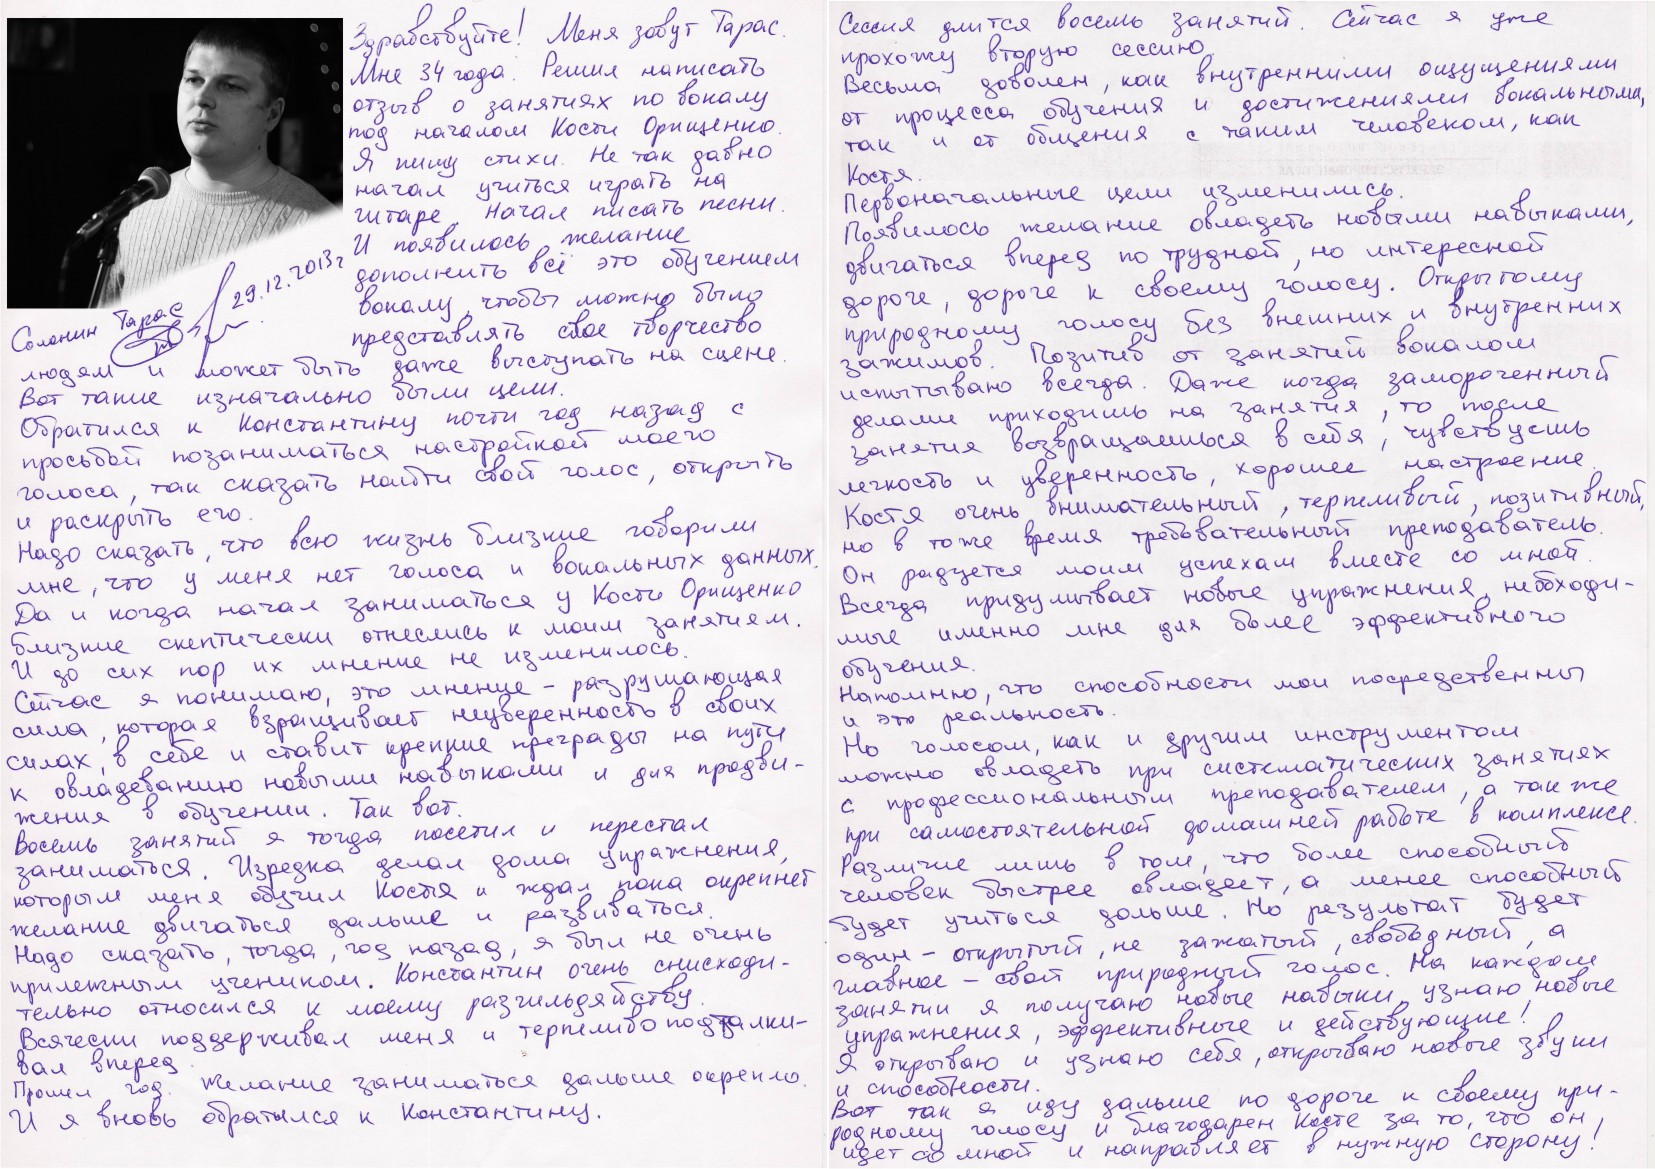 Здравствуйте! Меня зовут Тарас.
Мне 34 года. Решил написать
отзыв о занятиях по вокалу
под началом Кости Орищенко.
Я пишу стихи. Не так давно
начал учиться играть на
гитаре. Начал писать песни.
И появилось желание
дополнить всё это обучением
вокалу, чтобы можно было
представлять свое творчество
людям и может быть даже выступать на сцене.
Вот такие изначально были цели.
Обратился к Константину почти год назад с
просьбой позаниматься настройкой моего
голоса, так сказать найти свой голос, открыть
и раскрыть его.
Надо сказать, что всю жизнь близкие говорили
мне, что у меня нет голоса и вокальных данных.
Да и когда начал заниматься у Кости Орищенко
близкие скептически отнеслись к моим занятием.
И до сих пор их мнение не изменилось.
Сейчас я понимаю, это мнение – разрушающая
сила, которая взращивает неуверенность в своих
силах, в себе и ставит крепкие преграды на пути
к овладеванию новыми навыками и для продви-
жения в обучении. Так вот.
Восемь занятий я тогда посетил и перестал
заниматься. Изредка делал дома упражнения,
которым меня обучил Костя и ждал пока окрепнет
желание двигаться дальше и развиваться.
Надо сказать, тогда, год назад, я был не очень
прилежным учеником. Константин очень снисходи-
тельно относился к моему разгильдяйству.
Всячески поддерживал меня и терпеливо подталки-
вал вперед.
Прошел год. Желание заниматься дальше окрепло.
И я вновь обратился к Константину.
Солонин Тарас
29.12.2013г
Сессия длится восемь занятий. Сейчас я уже
прохожу вторую сессию.
Весьма доволен, как внутренними ощущениями
от процесса обучения и достижениями вокальными,
так и от общения с таким человеком, как
Костя.
Первоначальные цели изменились.
Появилось желание овладеть новыми навыками,
двигаться вперед по трудной, но интересной
дороге, дороге к своему голосу. Открытому
природному голосу без внешних и внутренних
зажимов. Позитив от занятий вокалом
испытываю всегда. Даже когда замороченный
делами приходишь на занятия, то после
занятия возвращаешься в себя, чувствуешь
легкость и уверенность, хорошее настроение.
Костя очень внимательный, терпеливый, позитивный,
но в тоже время требовательный преподаватель.
Он радуется моим успехам вместе со мной.
Всегда придумывает новые упражнения, необходи-
мые именно мне для более эффективного
обучения.
Напомню, что способности мои посредственны
и это реальность.
Но голосом, как и другим инструментом
можно овладеть при систематических занятиях
с профессиональным преподавателем, а также
при самостоятельной домашней работе в комплексе.
Различие лишь в том, что более способный
человек быстрее овладеет, а менее способный
будет учиться дольше. Но результат будет
один – открытый, не зажатый, свободный, а
главное – свой природный голос. На каждом
занятии я получаю новые навыки, узнаю новые
упражнения, эффективные и действующие!
Я открываю и узнаю себя, открываю новые звуки
и способности.
Вот так я иду дальше по дороге к своему при-
родному голосу и благодарен Косте за то, что он
идет со мной и направляет в нужную сторону!